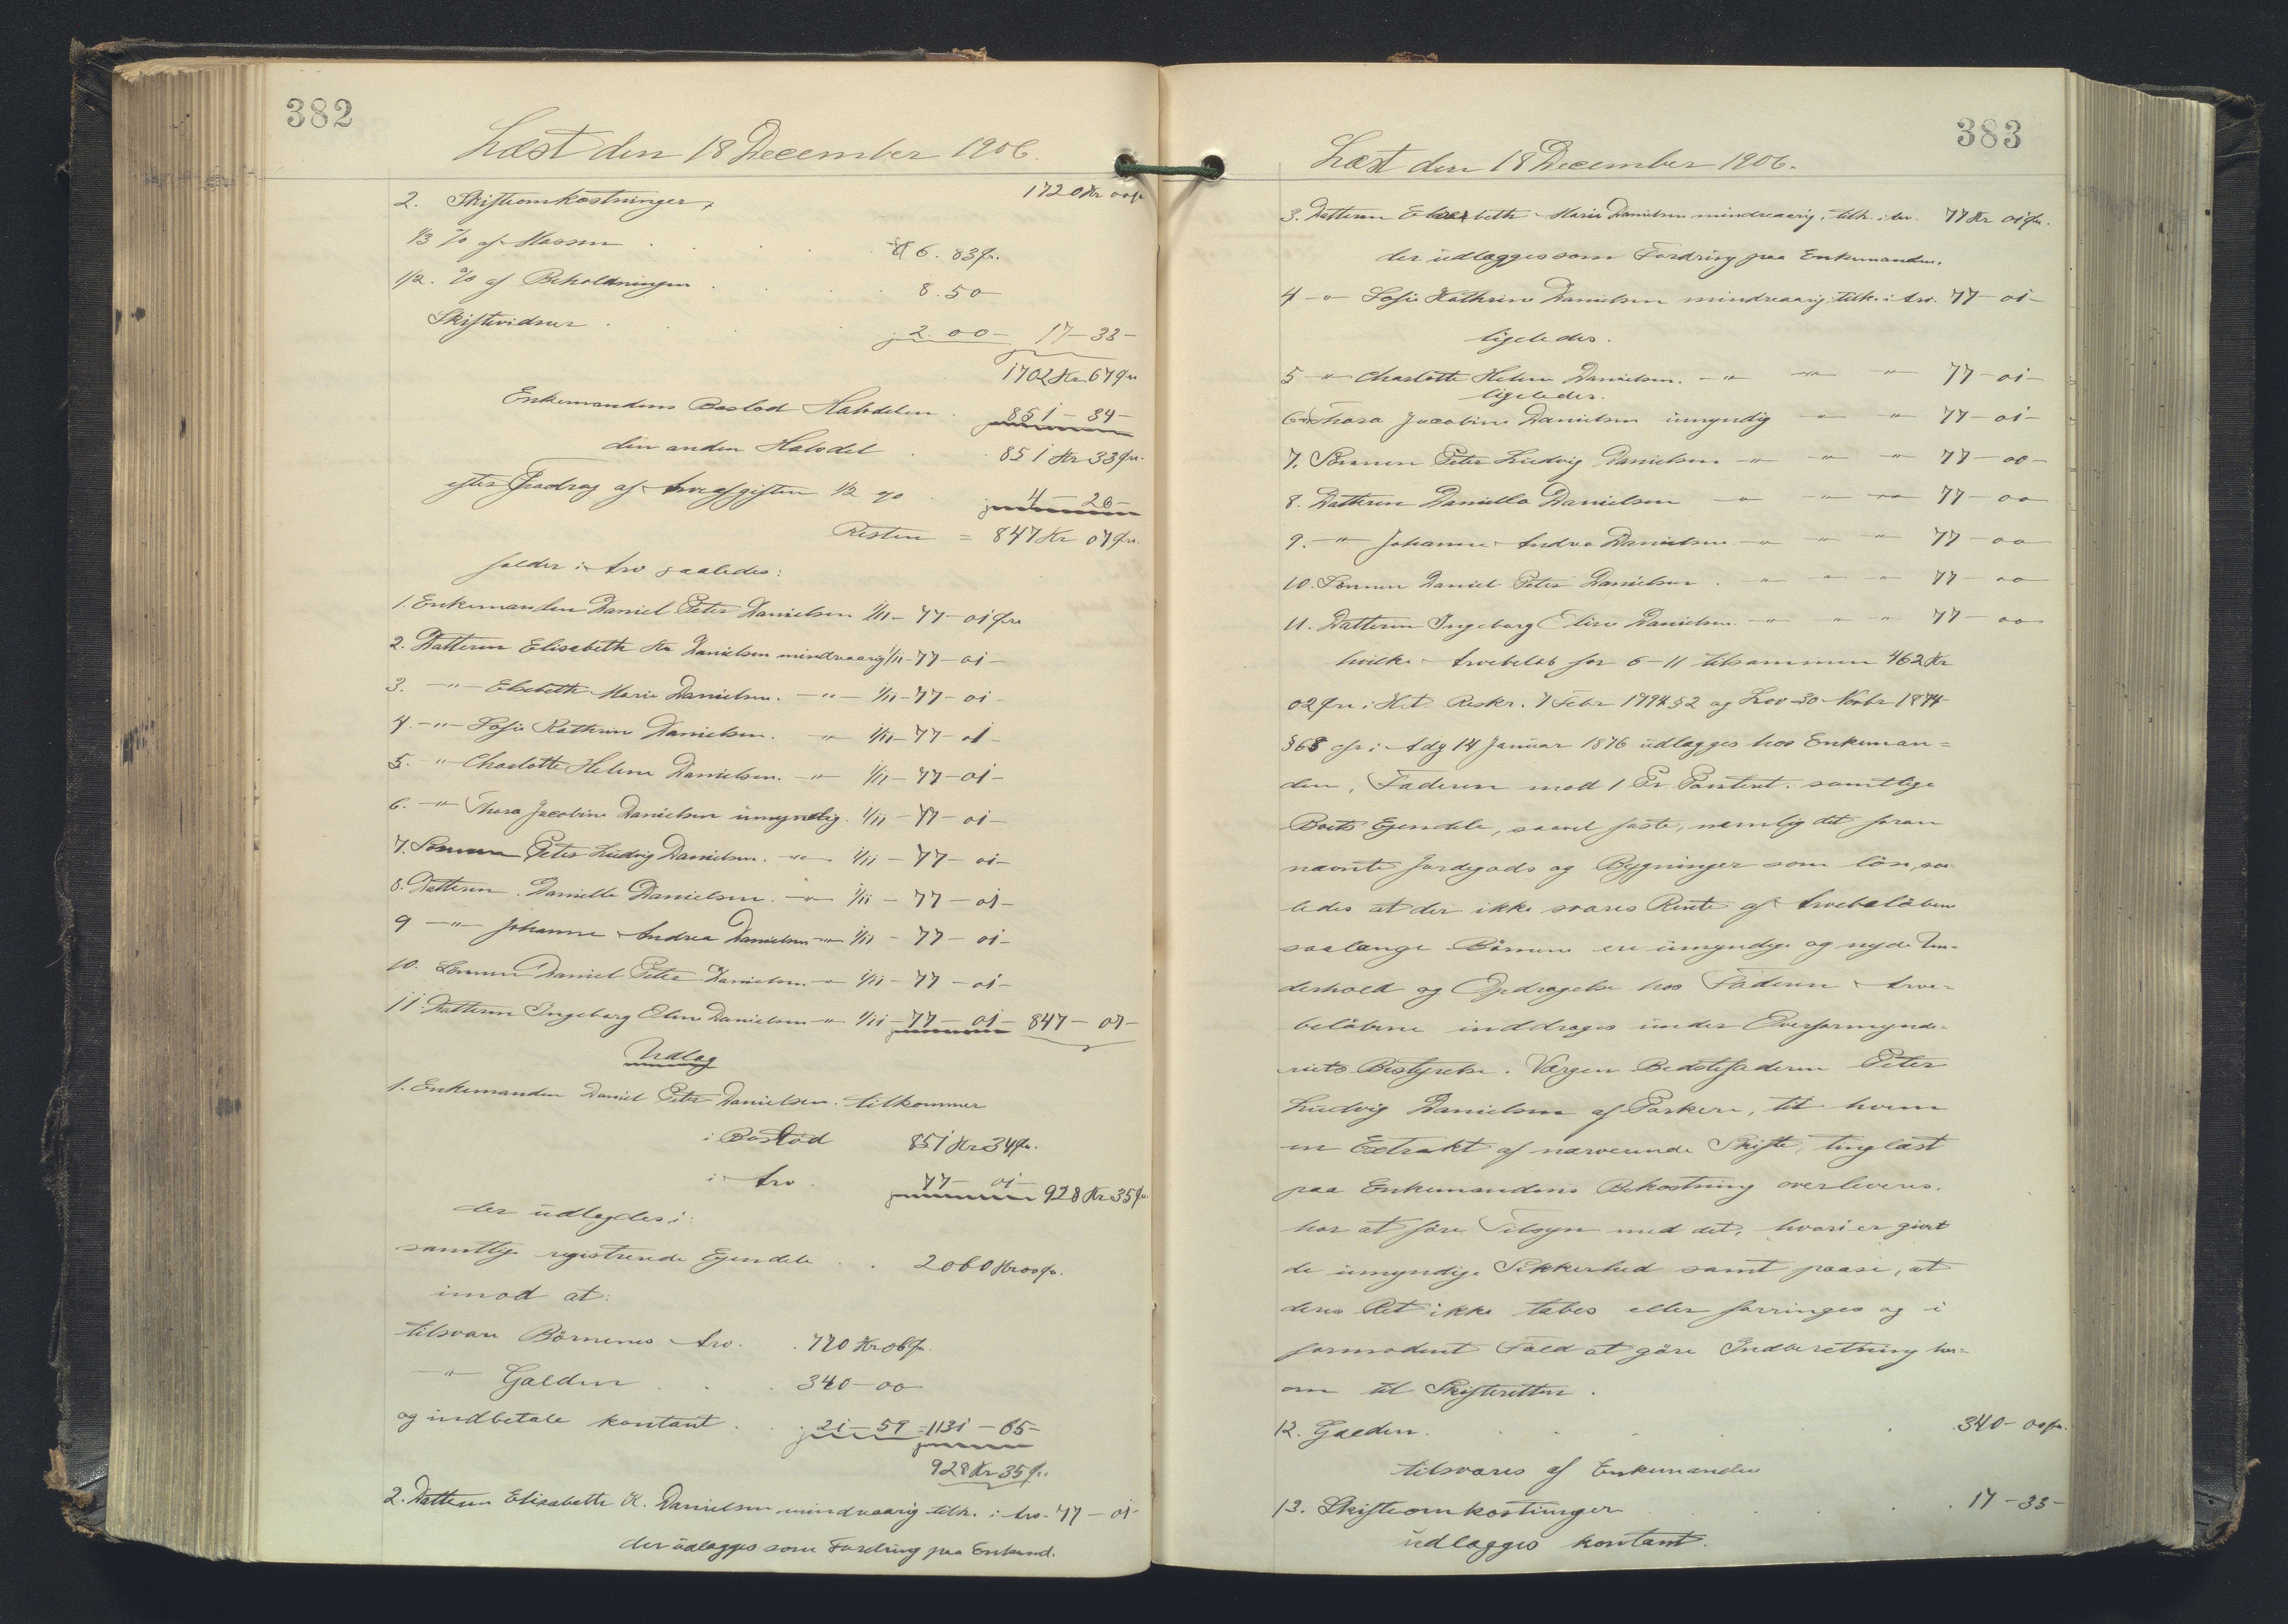 382
Læst den 18 December 1906.
2. Skifteomkostninger, 1720 Kr 00 Ør
1/3 % af Massen 6. 83 Ør.
1/2. % af Beholdningen 8. 50 —
Skiftevidner 2. 00 — 17 — 33 —
1702 Kr. 67 Ør
Enkemandens Boslod Halvdelen 851 — 34 —
den anden Halvdel 851 Kr 33 Ør.
efter Fradrag af Arveafgiften 1/2 % 4 — 26 —
Resten = 847 Kr 07 Ør.
falder i Arv saaledes:
1. Enkemanden Daniel Peter Danielsen 1/11 — 77 — 01 Øre
2. Datteren Elisabeth Danielsen mindreaarig 1/11 — 77 — 01 —
3. — " — Elsebeth Marie Danielsen. — " — 1/11 — 77 — 01 —
4. — " — Sofie Kathrine Danielsen. — " — 1/11 — 77 — 01 —
5. — " — Charlotte Helene Danielsen. — " — 1/11 — 77 — 01 —
6. — " — Thora Jacobine Danielsen umyndig. 1/11 — 77 — 01 —
7. Sønnen Peter Ludvig Danielsen. — " — 1/11 — 77 — 01 —
8. Datteren Daniella Danielsen. — " — 1/11 — 77 — 01 —
9 — " — Johanne Andrea Danielsen — " — 1/11 — 77 — 01 —
10. Sønnen Daniel Peter Danielsen. — " — 1/11 — 77 — 01 —
11. Datteren Ingeborg Eline Danielsen — " — 1/11 — 77 — 01 — 847 — 07 —
Udlæg
1. Enkemanden Daniel Peter Danielsen. tilkommer
i Boslod 851 Kr 34 Ør.
i Arv 77 — 01 — 928 Kr 35 Ør.
der udlægdes i:
samtlige registrerede Ejendele 2060 Kr 00 Ør.
imod at:
tilsvare Børnenes Arv. 770 Kr 06 Ør.
— " — Gælden 340 — 00
og indbetale kontant 21 — 59 = 1131 — 65 —
928 Kr 35 Ør.
2. Datteren Elisabeth K. Danielsen mindreaarig tilk. i Arv. 77 — 01 —
der udlægges som Fordring paa Enkemd.
383
Læst den 18 December 1906.
3. Datteren Elsebeth Marie Danielsen mindreaarig, tilk. i Arv. 77 Kr 01 Ør.
der udlægges som Fordring paa Enkemanden.
4 — " — Sofie Kathrine Danielsen mindreaarig tilk. i Arv. 77 — 01 —
ligeledes.
5 — " — Charlotte Helene Danielsen. — " — — " — " — 77 — 01 —
ligeledes.
6 — " — Thora Jacobine Danielsen umyndig — " — " — 77 — 01 —
7. Sønnen Peter Ludvig Danielsen — " — — " — " — 77 — 00 —
8. Datteren Daniella Danielsen — " — — " — " — 77 — 00
9. — " — Johanne Andrea Danielsen — " — — " — " — 77 — 00
10. Sønnen Daniel Peter Danielsen. — " — — " — " — 77 — 00
11. Datteren Ingeborg Eline Danielsen — " — — " — " — 77 — 00
hvilke Arvebeløb for 6 — 11 tilsammen 462 Kr
02 Øre i H.t. Reskr. 7 Febr 1794 § 2 og Lov 30 Novbr 1874
§ 68 cfr. i Adg 14 Januar 1876 udlægges hos Enkeman=
den, Faderen mod 1 Pr. Panteret i samtlige
Boets Ejendele, saavel faste, nemlig det foran
nævnte Jordegods og Bygninger som løse, saa
ledes at der ikke svares Rente af Arvebeløbene
saalænge Børnene ere umyndige og nyde Un-
derhold og Opdragelse hos Faderen Arve-
beløbene inddrages under Overformynde-
riets Bestyrelse. Værgen Bedstefaderen Peter
Ludvig Danielsen af Porkere, til hvem
en Extrakt af nærværende Skifte, tinglæst
paa Enkemandens Bekostning overleveres.
har at føre Tilsyn med det, hvori er givet
de umyndige Sikkerhed samt paase, at
deres Ret ikke tabes eller forringes og i
formodent Fald at gøre Indberetning her=
om til Skifteretten.
12. Gælden 340 — 00 Ør.
tilsvares af Enkemanden
13. Skifteomkostninger 17 — 33 —
udlægges kontant.